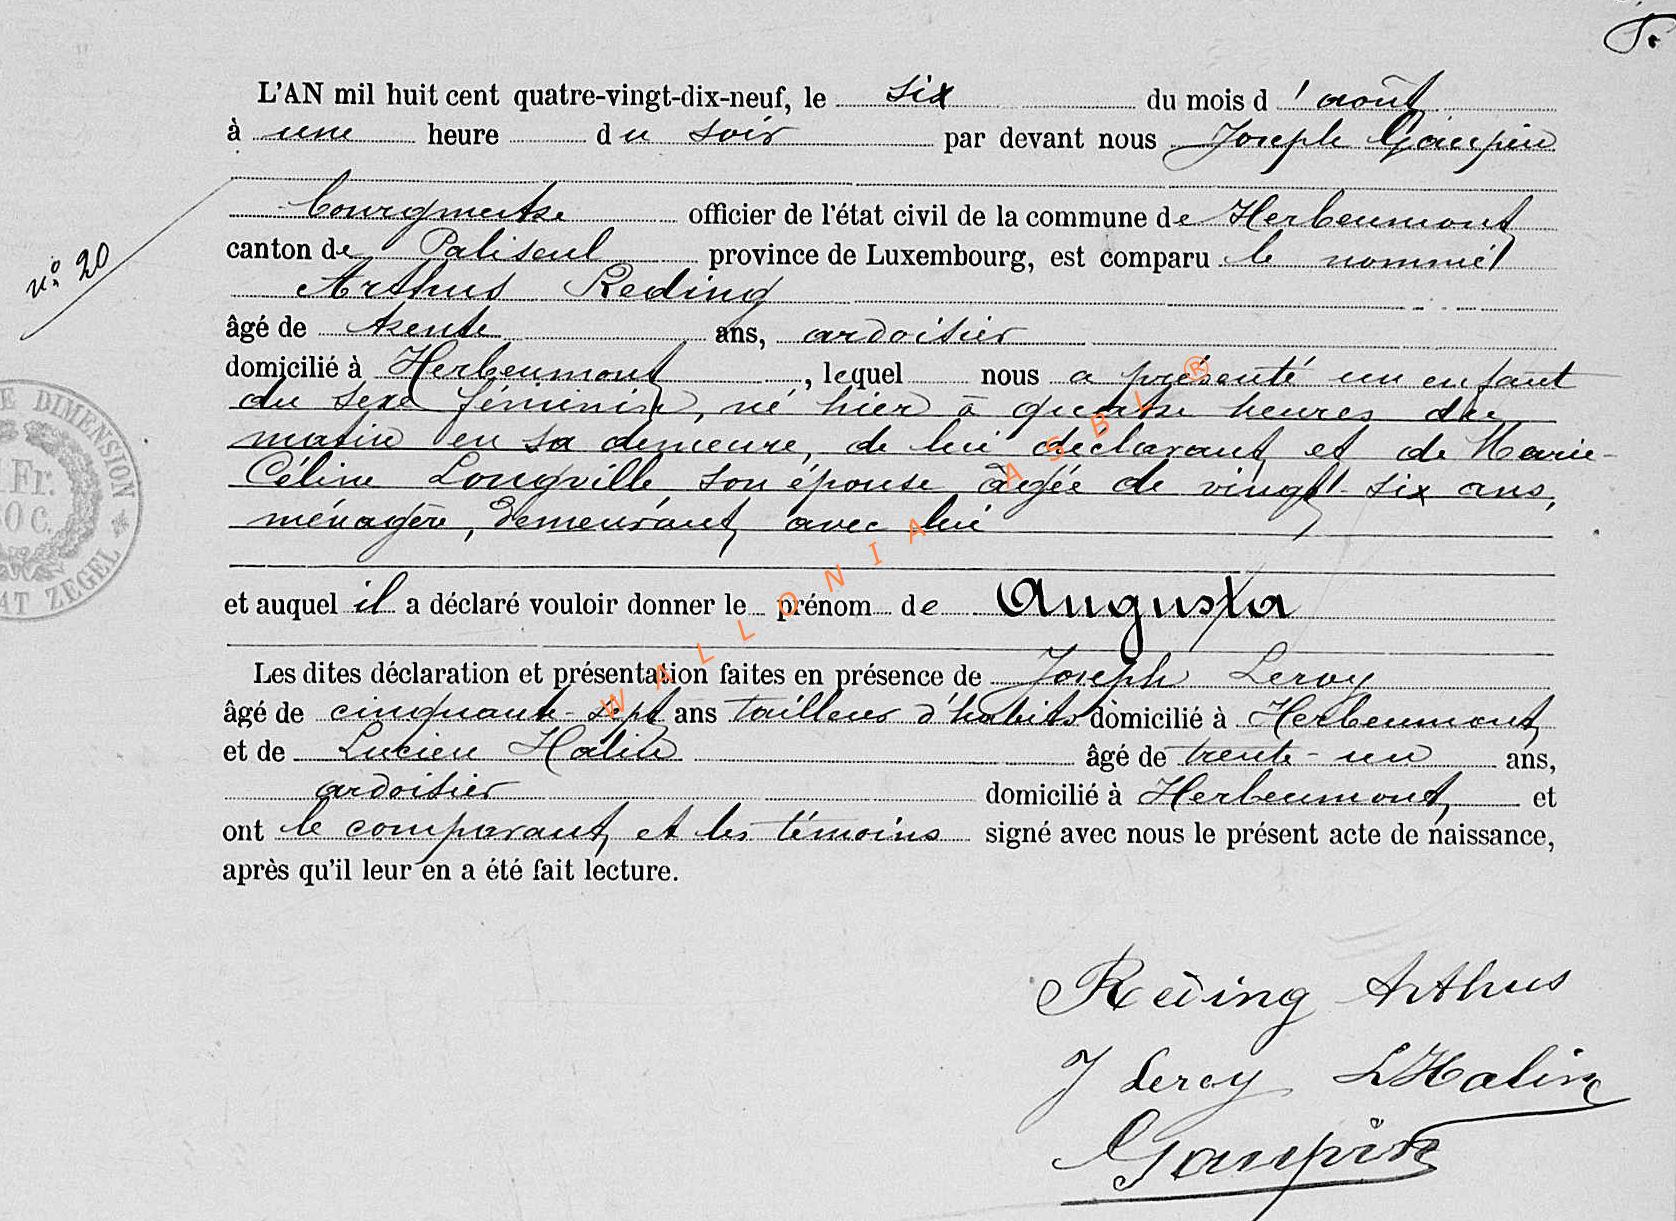 L'AN mil huit cent quatre-vingt-dix-neuf, le six du mois d'août
à une heure du soir par devant nous Joseph Gaupin
bourgmestre officier de l'état civil de la commune de Herbeumont
n.º 20
canton de Paliseul province de Luxembourg, est comparu le nommé
Arthur Reding
âgé de trente ans, ardoisier
domicilié à Herbeumont, lequel nous a présenté un enfant
du sexe féminin, né hier à quatre heures du
matin en sa demeure, de lui déclarant et de Marie-
Céline Longville son épouse âgée de vingt-six ans,
ménagère, demeurant avec lui
et auquel il a déclaré vouloir donner le prénom de Augusta
Les dites déclaration et présentation faites en présence de Joseph Leroy
âgé de cinquante-sept ans tailleur d'habits domicilié à Herbeumont
et de Lucien Halin âgé de trente-un ans,
ardoisier domicilié à Herbeumont et
ont le comparant et les témoins signé avec nous le présent acte de naissance,
après qu'il leur en a été fait lecture.
Reding Arthur
J Leroy L Halin
Gaupin
DIMENSION
1 Fr.
50 C.
ZEGEL
WALLONIA ASBL ®